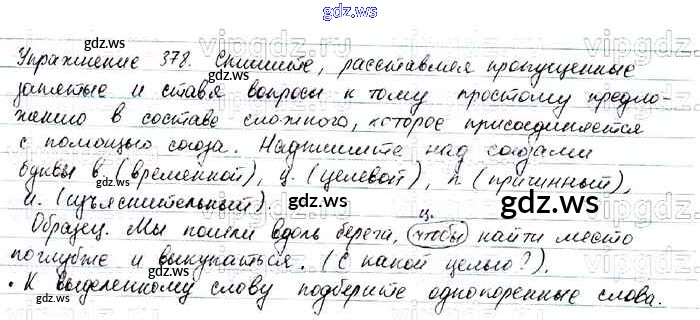 gdz.ws
Упражнение 378. Спишите, расставляя пропущенные
запятые и ставя вопросы к тому простому предло-
жению в составе сложного, которое присоединяется
с помощью союза. Надпишите над союзами
буквы в. (временной), ц. (целевой), п (причинный),
и. (изъяснительный).
ц.
Образец. Мы пошли вдоль берега, чтобы найти место
поглубже и выкупаться. (С какой целью?).
• К выделенному слову подберите однокоренные слова.